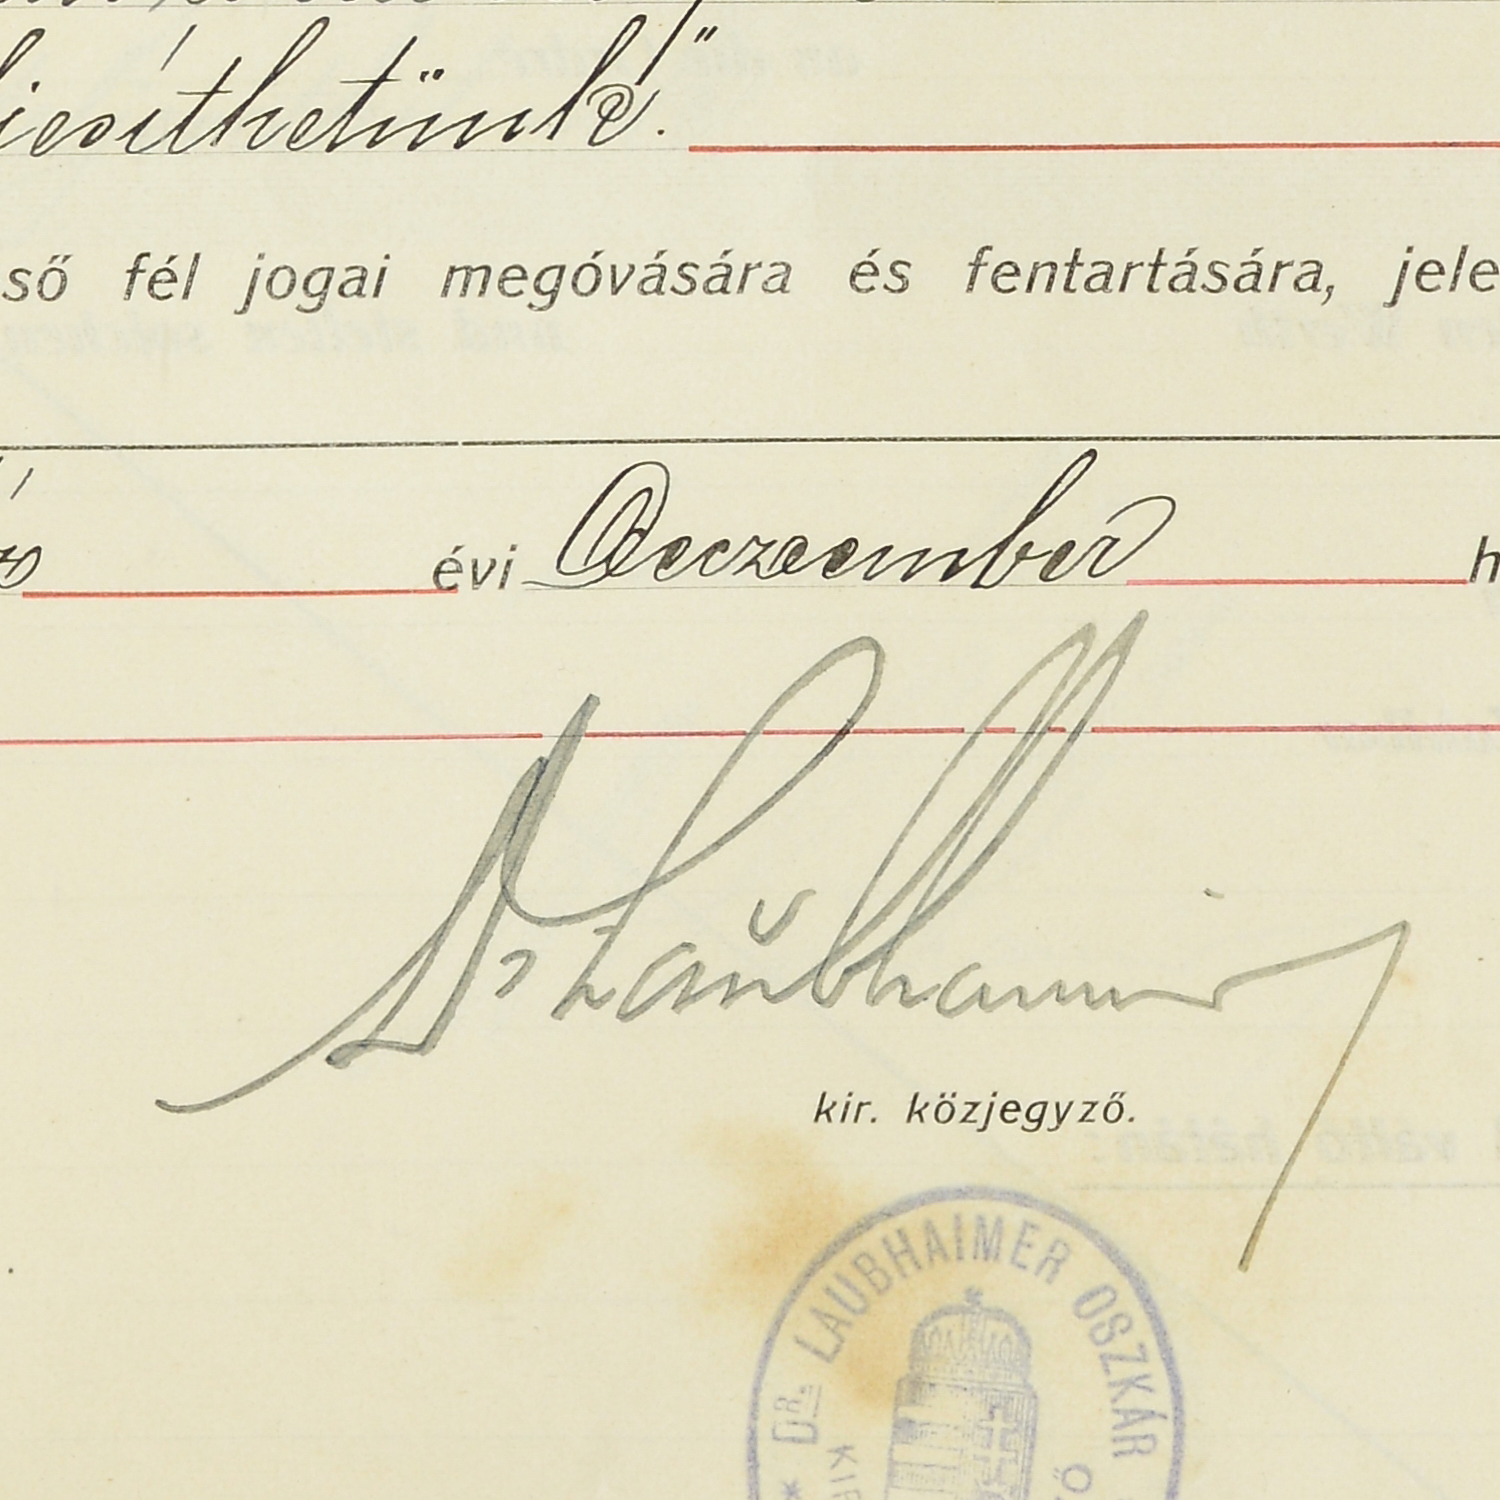 jesíthetünk".
ső fél jogai megóvására és fentartására, jele
évi Deczember h
Dr Laubhaimer
kir. közjegyző.
* DR. LAUBHAIMER OSZKÁR
KIR